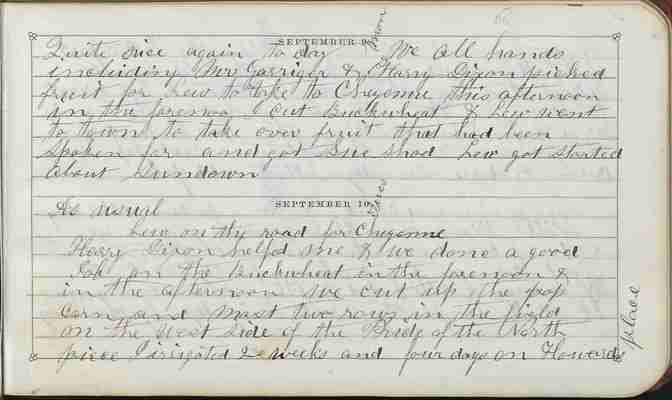 SEPTEMBER 9. Mon
Quite nice again to day We all hands
including Mr Garrigan & Harry Dixon picked
fruit for Lew to take to Cheyenne this afternoon
in the forenoon I cut Buckwheat & Lew went
to town to take over fruit that had been
spoken for and got Sue shod Lew got started
about Sundown
SEPTEMBER 10. Tues
As usual
Lew on thy road for Cheyenne
Harry Dixon helpd me & we done a good
Job on the Buckwheat in the forenoon &
in the afternoon we cut up the pop
corn and most two rows in the field
on the west side of the Pride of the North
piece I irigated 2 weeks and four days on Howards
place